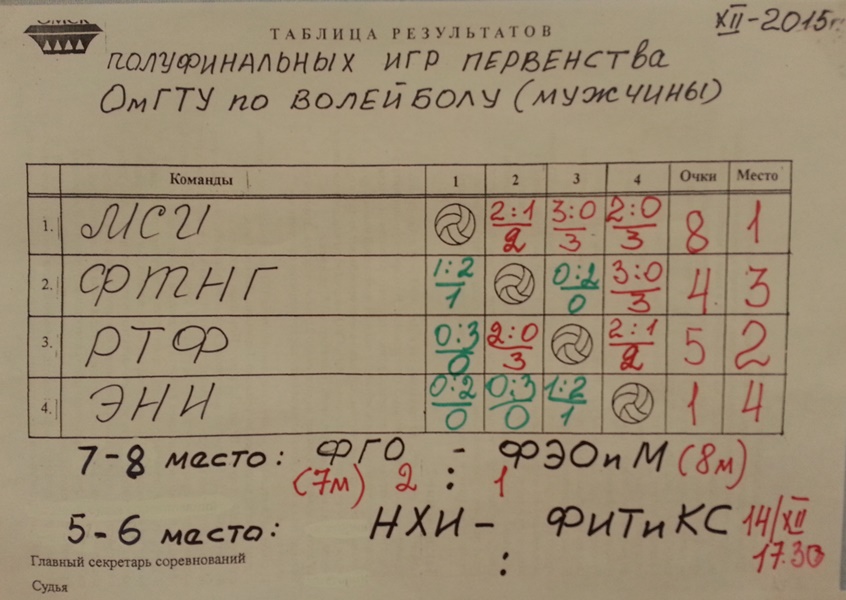 ОМСК
ТАБЛИЦА РЕЗУЛЬТАТОВ
XII-2015г.
ПОЛУФИНАЛЬНЫХ ИГР ПЕРВЕНСТВА
ОмГТУ ПО ВОЛЕЙБОЛУ (МУЖЧИНЫ)
Команды 1 2 3 4 Очки Место
1. МСИ 2:1/2 3:0/3 2:0/3 8 1
2. ФТНГ 1:2/1 0:2/0 3:0/3 4 3
3. РТФ 0:3/0 2:0/3 2:1/2 5 2
4. ЭНИ 0:2/0 0:3/0 1:2/1 1 4
7-8 место: ФГО - ФЭОиМ (8м)
(7м) 2 : 1
5-6 место: НХИ - ФИТиКС 14/XII
: 17.30
Главный секретарь соревнований
Судья